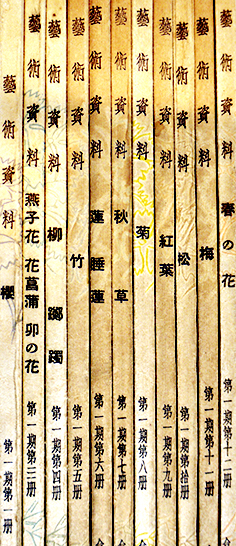 藝術資料 櫻 第一期第一册
藝術資料 燕子花 花菖蒲 卯の花 第一期第三册
藝術資料 柳 躑躅 第一期第四册
藝術資料 竹 第一期第五册
藝術資料 蓮 睡蓮 第一期第六册
藝術資料 秋草 第一期第七册
藝術資料 菊 第一期第八册
藝術資料 紅葉 第一期第九册
藝術資料 松 第一期第拾册
藝術資料 梅 第一期第十一册
藝術資料 春の花 第一期第十二册